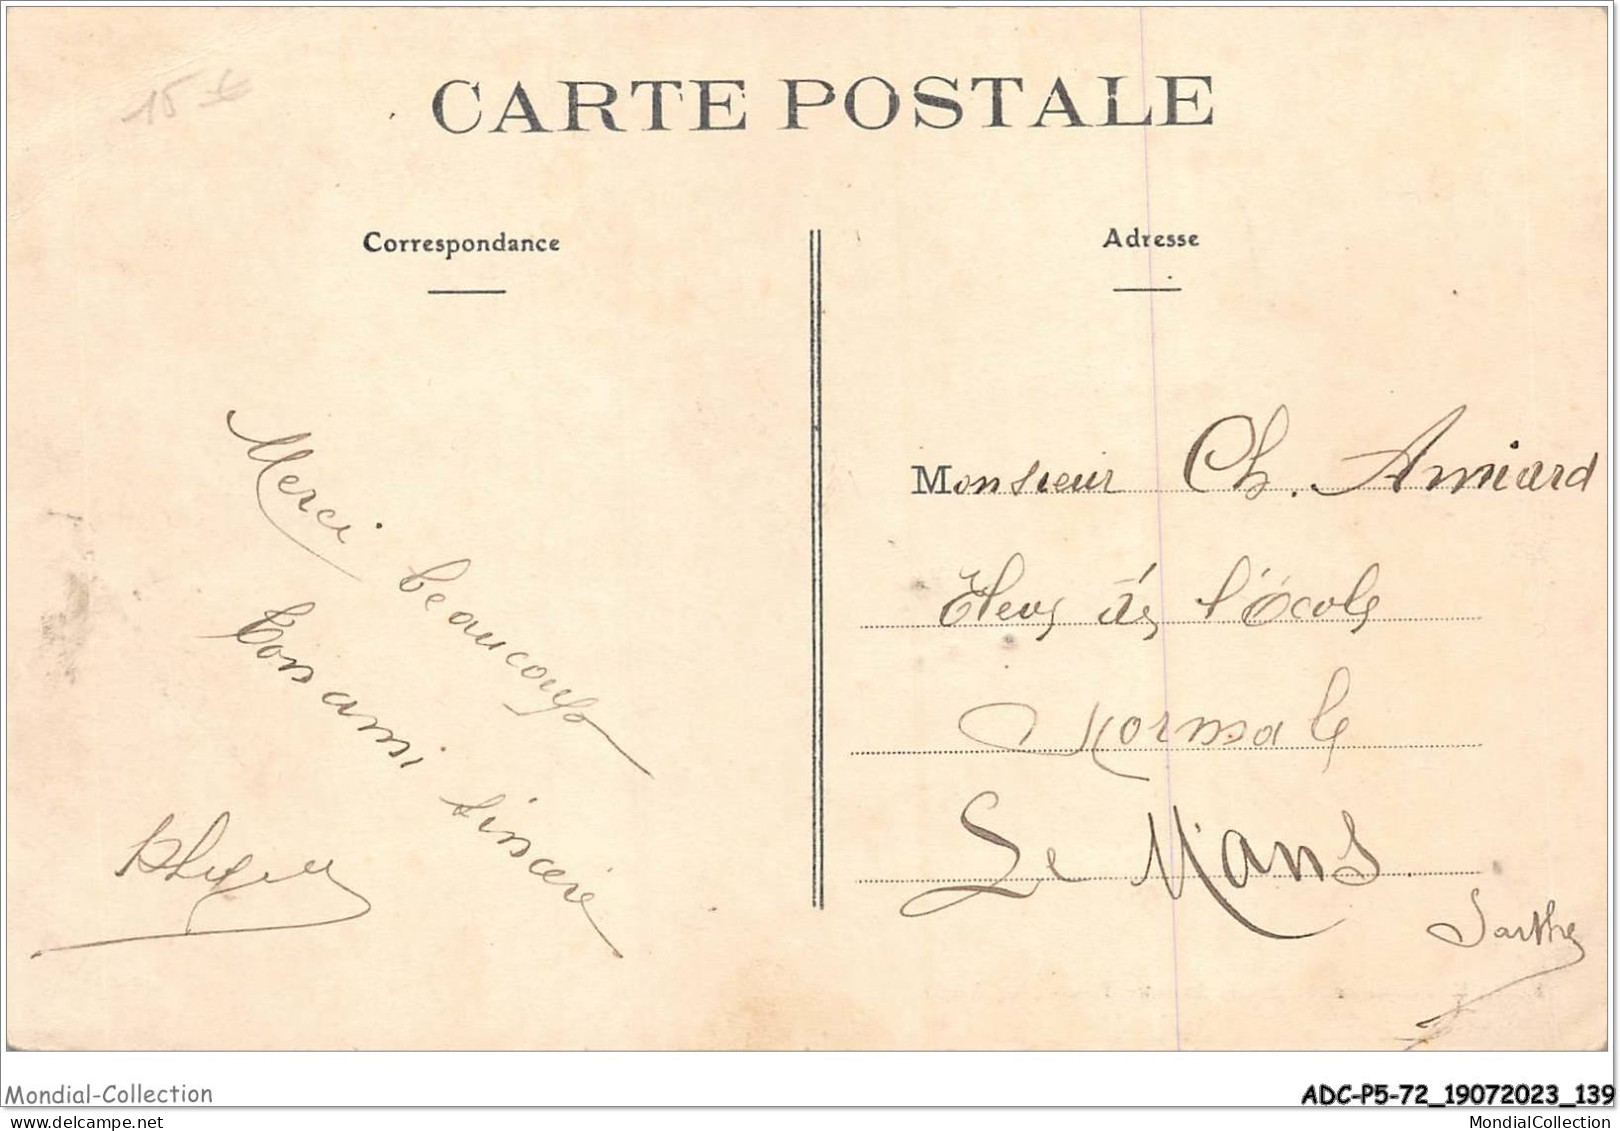 15 €
CARTE POSTALE
Correspondance
Adresse
Merci beaucoup
Ton ami sincère
Monsieur Ch. Amiard
Elève à l'École
Normale
Le Mans
Sarthe
Mondial-Collection
ADC-P5-72_19072023_139
MondialCollection